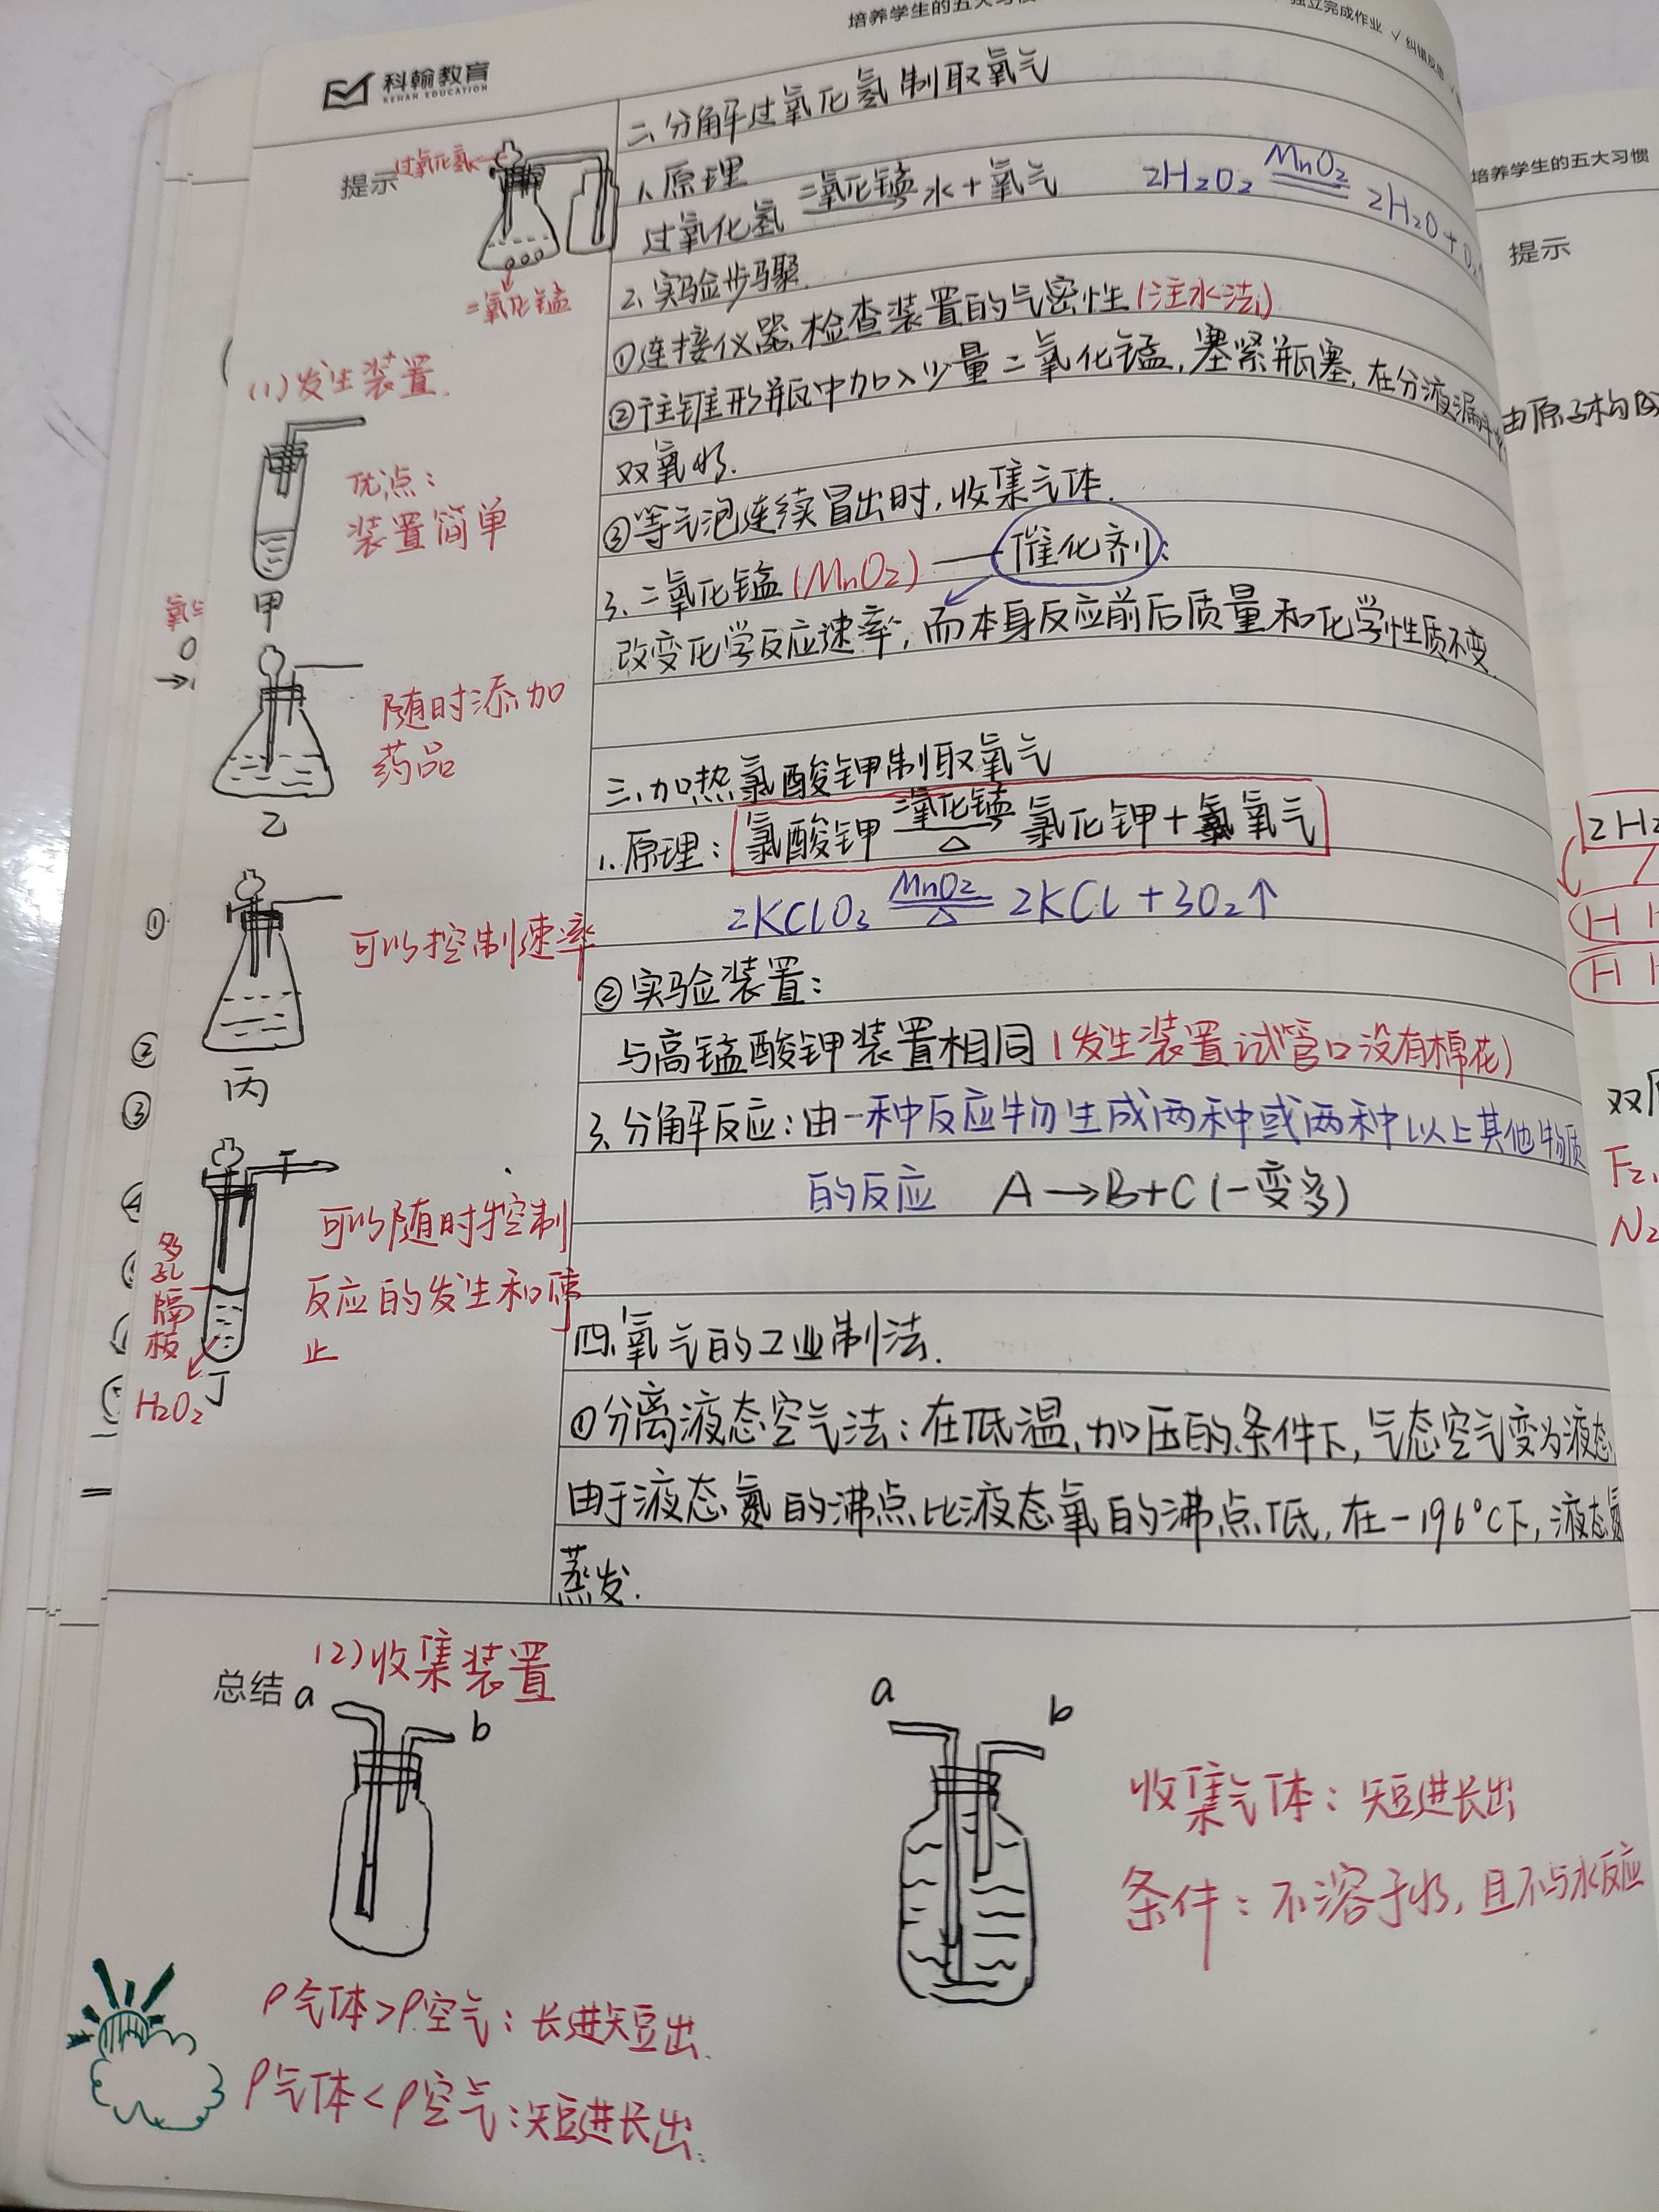 培养学生的五大习惯
独立完成作业 √ 纠错反思
科翰教育
KEHAN EDUCATION
提示
过氧化氢
二氧化锰
(1)发生装置.
优点:
装置简单
甲
随时添加
药品
乙
可以控制速率
丙
可以随时控制
反应的发生和停
止
多孔隔板
H₂O₂
丁
二、分解过氧化氢制取氧气
1、原理
过氧化氢 二氧化锰 水+氧气 2H₂O₂ MnO₂ 2H₂O+O₂
2、实验步骤.
①连接仪器,检查装置的气密性(注水法)
②往锥形瓶中加入少量二氧化锰,塞紧瓶塞,在分液漏斗中
双氧水.
③等气泡连续冒出时,收集气体.
3、二氧化锰(MnO₂)——催化剂:
改变化学反应速率,而本身反应前后质量和化学性质不变.
三、加热氯酸钾制取氧气
1、原理: 氯酸钾 二氧化锰 △ 氯化钾+氧气
2KClO₃ MnO₂ △ 2KCl+3O₂↑
②实验装置:
与高锰酸钾装置相同(发生装置试管口没有棉花)
3、分解反应:由一种反应物生成两种或两种以上其他物质
的反应 A→B+C(一变多)
四、氧气的工业制法.
①分离液态空气法:在低温,加压的条件下,气态空气变为液态
由于液态氮的沸点比液态氧的沸点低,在-196°C下,液态氮
蒸发.
总结
(2)收集装置
a
b
ρ气体>ρ空气:长进短出.
ρ气体<ρ空气:短进长出.
a
b
收集气体:短进长出
条件:不溶于水,且不与水反应
氧
①
②
③
培养学生的五大习惯
提示
由原子构成
2H₂
H H
H H
双原
F₂,
N₂